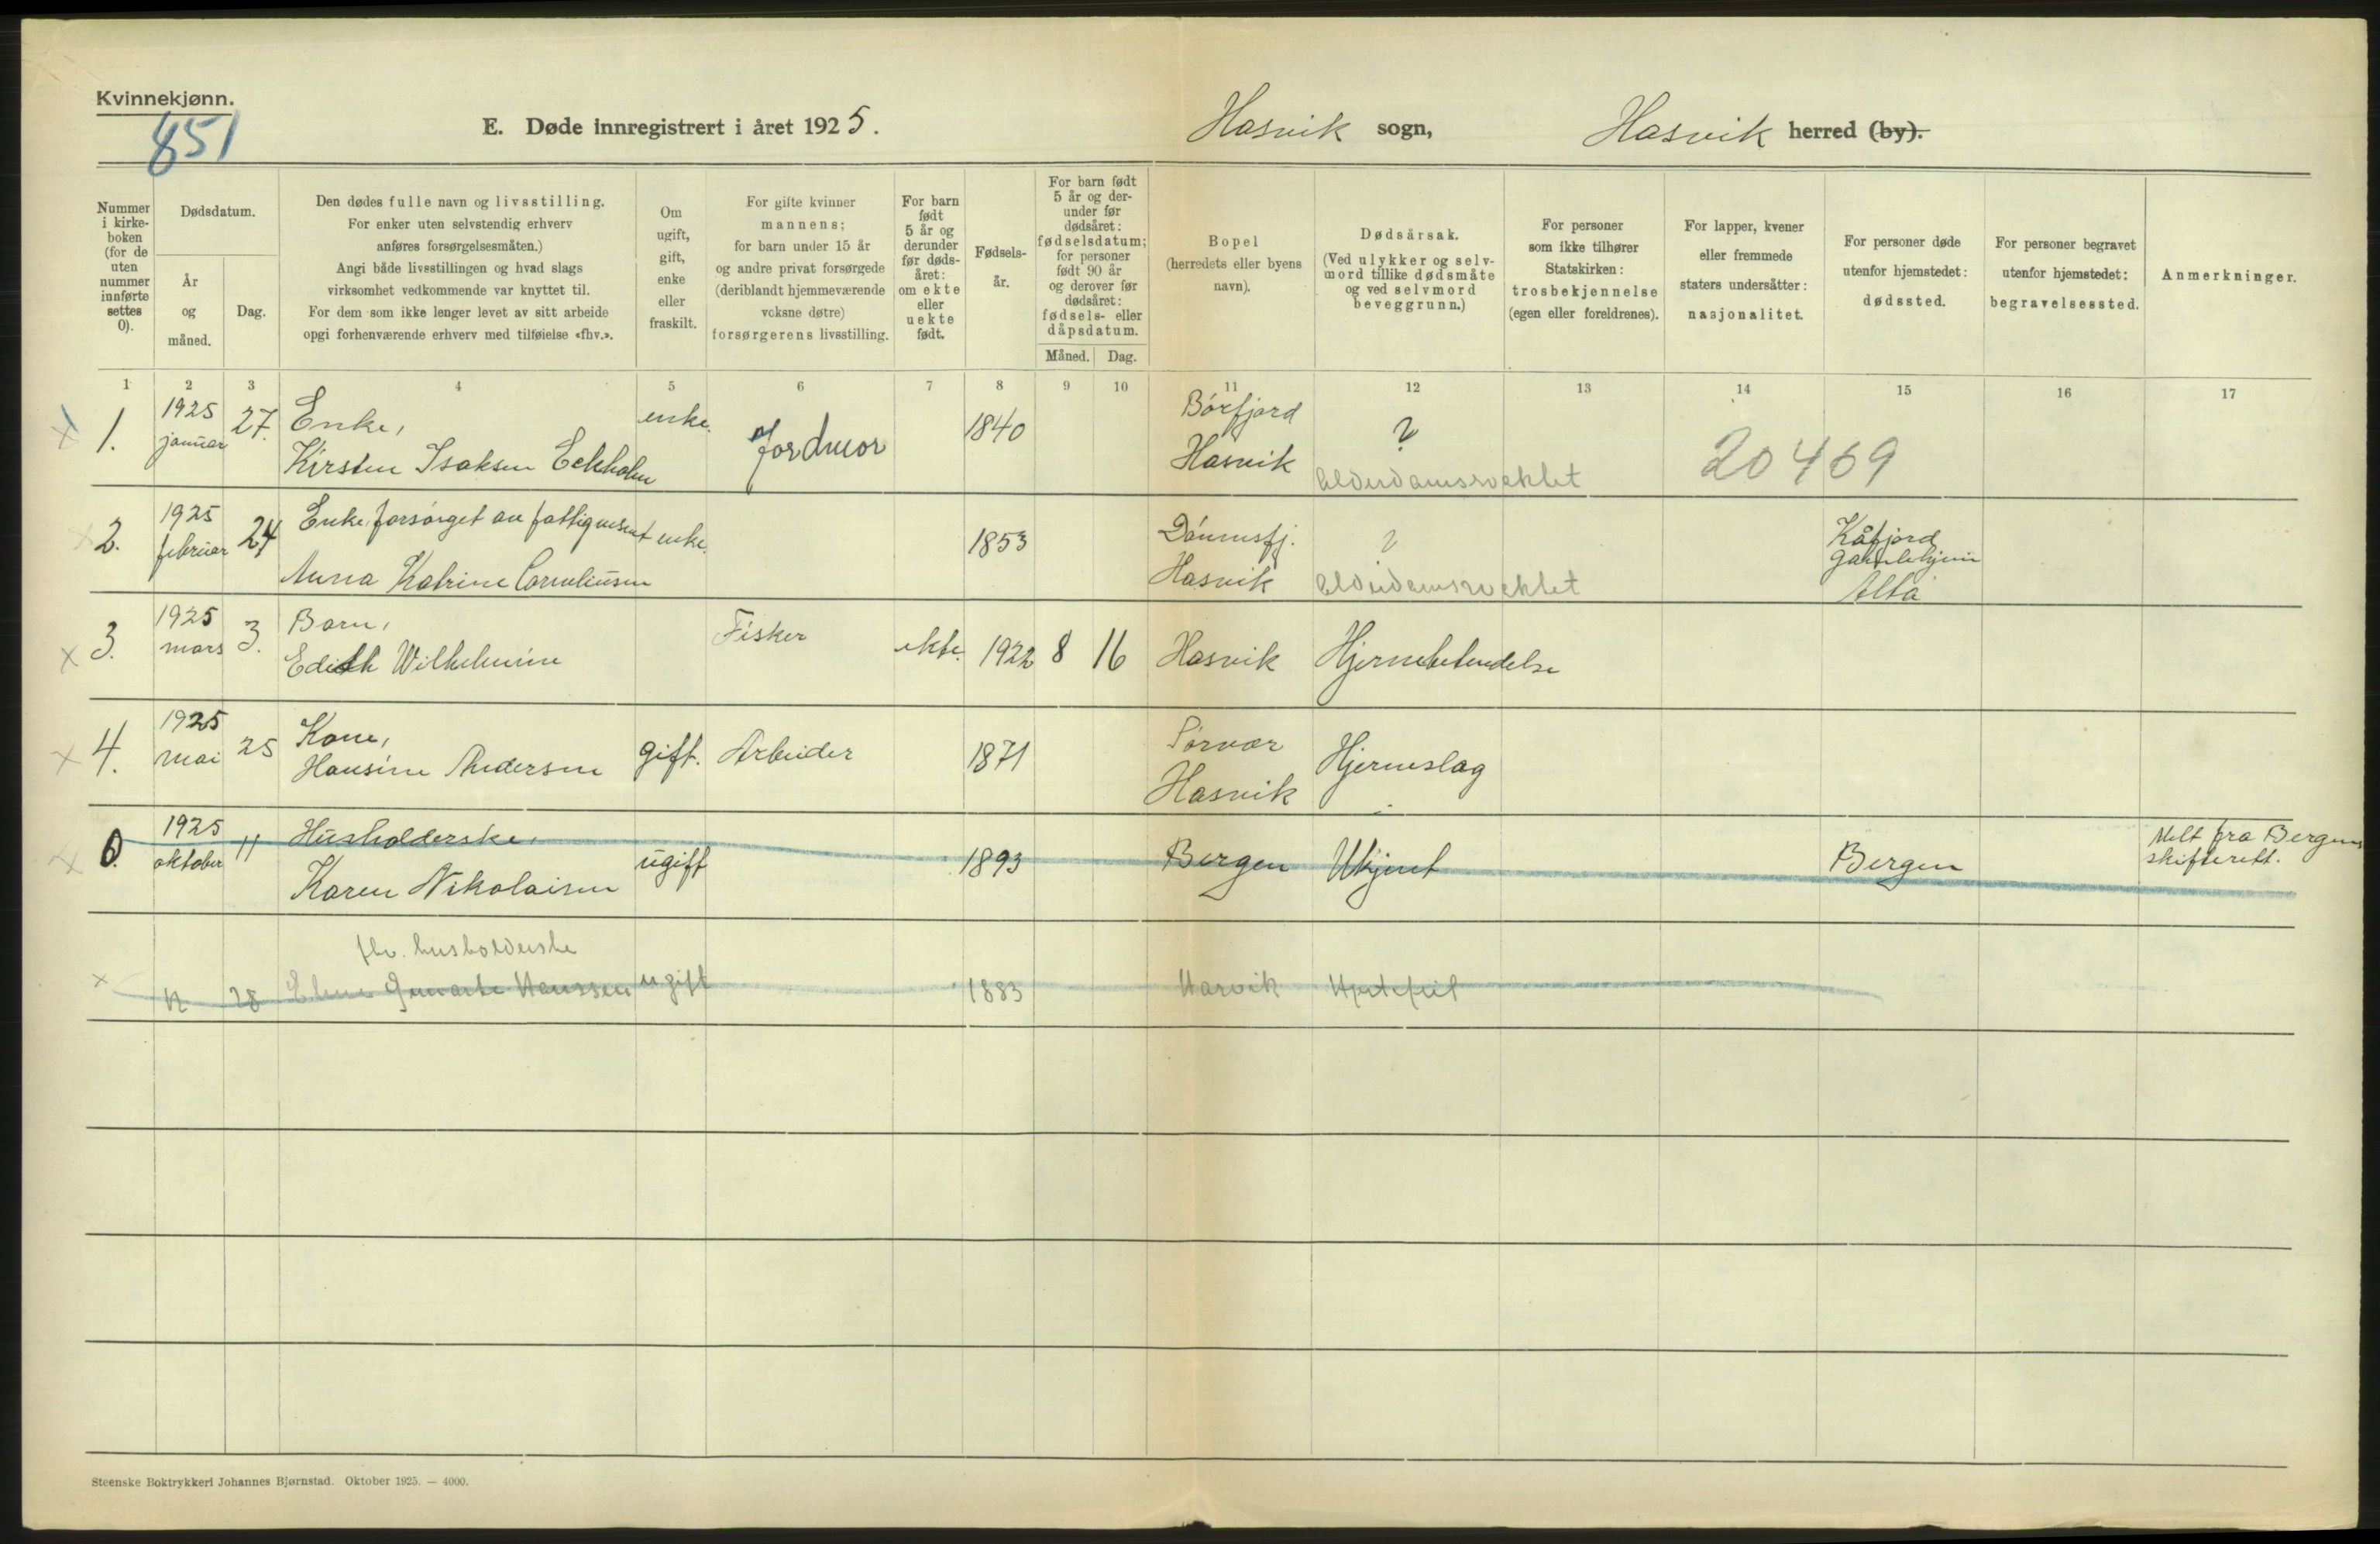 Kvinnekjønn.
851
E. Døde innregistrert i året 1925.
Hasvik sogn,
Hasvik herred (by).
Nummer i kirke-boken (for de uten nummer innførte settes 0).
Dødsdatum.
År og måned.
Dag.
Den dødes fulle navn og livsstilling.
For enker uten selvstendig erhverv
anføres forsørgelsesmåten.)
Angi både livsstillingen og hvad slags
virksomhet vedkommende var knyttet til.
For dem som ikke lenger levet av sitt arbeide
opgi forhenværende erhverv med tilføielse «fhv.».
Om ugift, gift, enke eller fraskilt.
For gifte kvinner
mannens;
for barn under 15 år
og andre privat forsørgede
(deriblandt hjemmeværende
voksne døtre)
forsørgerens livsstilling.
For barn født 5 år og derunder før døds-året: om ekte eller uekte født.
Fødsels-år.
For barn født 5 år og der-under før dødsåret: fødselsdatum; for personer født 90 år og derover før dødsåret: fødsels- eller dåpsdatum.
Måned. Dag.
Bopel
(herredets eller byens
navn).
Dødsårsak.
(Ved ulykker og selv-
mord tillike dødsmåte
og ved selvmord
beveggrunn.)
For personer
som ikke tilhører
Statskirken:
trosbekjennelse
(egen eller foreldrenes).
For lapper, kvener
eller fremmede
staters undersåtter:
nasjonalitet.
For personer døde
utenfor hjemstedet:
dødssted.
For personer begravet
utenfor hjemstedet:
begravelsessted.
Anmerkninger.
1 2 3 4 5 6 7 8 9 10 11 12 13 14 15 16 17
1. 1925 januar 27. Enke, enke. Jordmor 1840 Børfjord ?
Kirsten Isaksen Eckholm Hasvik Alderdomssvekket 20469
2. 1925 februar 24 Enke, forsørget av fattigvesenet enke. 1853 Dønnesfj. ? Kåfjord
Anna Katrine Corneliusen Hasvik Alderdomssvekket Gamlehjem Alta
3. 1925 mars 3. Barn, Fisker ekte. 1922 8 16 Hasvik Hjernebetendelse
Edith Wilhelmine
4. 1925 mai 25 Kone, gift. Arbeider 1871 Sørvær Hjerneslag
Hansine Andersen Hasvik
0. 1925 oktober 11 Husholderske, ugift 1893 Bergen Ukjent Bergen Melt fra Bergens skifterett.
Karen Nikolaisen
fhv. husholderske
12 28 Hanssen ugift 1883 Hasvik Hjertefeil
Steenske Boktrykkeri Johannes Bjørnstad. Oktober 1925. — 4000.